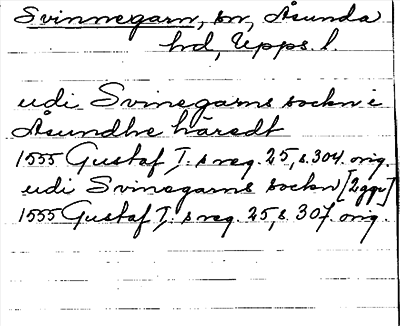 Svinnegarn, sn, Åsunda
hd, Upps. l.
udi Svinegarns sockn i
Åsundhe häredt
1555 Gustaf I:s reg. 25, s. 304. orig.
udi Svinegarns sockn [2ggr]
1555 Gustaf I:s reg. 25, s. 307. orig.